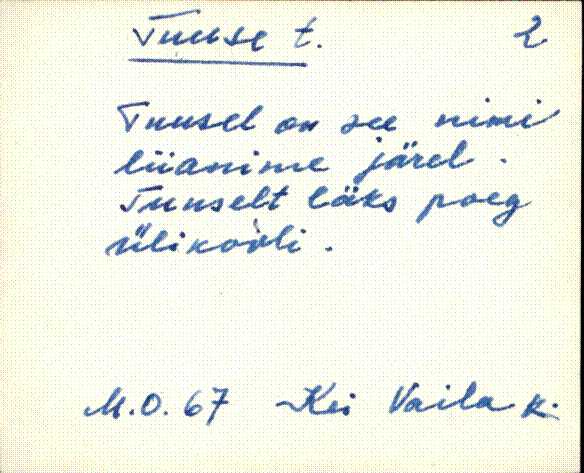 Tuuse t. 2
Tuusel on see nimi
liianime järel.
Tuuselt läks poeg
ülikooli.
M.O. 67 Kei Vaila k.